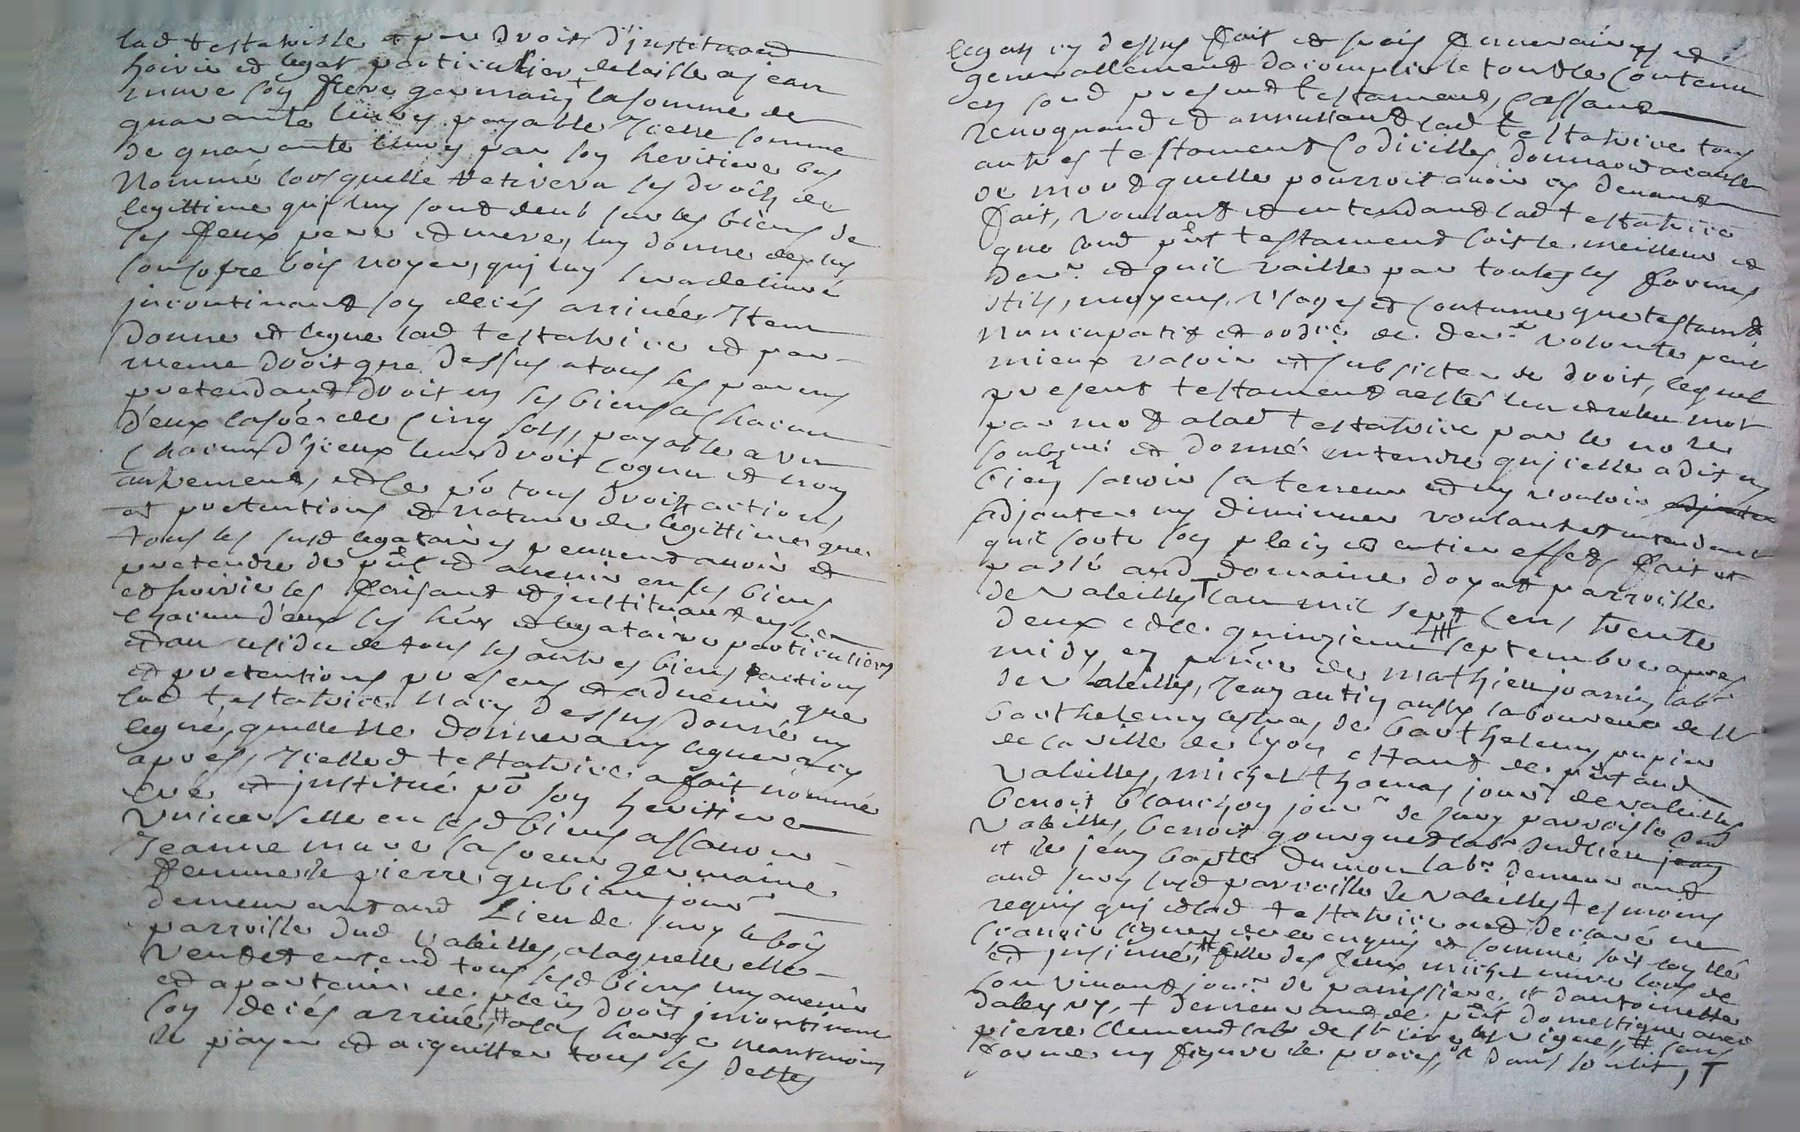 lad testatrisse & par droit d'institution
hoirie et legat particulier delaisse a jean
mure son frere germain + la somme de
quarante livres payable icelle somme
de quarante livres par son heritiere bas
nommé lorsquelle retirera ses droits de
legittime quj luy sont deub sur les biens de
ses feux pere et mere, luy donne de plus
son cofre bois noyer, quj luy sera delivré
jncontinant son decés arrivée, Item
donne et legue lad testatrice et par
meme droit que dessus a tous ses parens
pretendant droit en ses biens a chacun
d'eux la so͞e de cinq sols, payable a un
chacun d'jceux leur droit cognu et non
autrement, et ce po͞ tous droits actions
et pretentions et nature de legittime que
tous les susd legataires peuvent avoir et
pretendre de p͞nt et avenir en ses biens
et hoirie les faisant et jnstituant en ce
chacun d'eux ses hers et legataires particuliers
et au residu de tous ses autres biens actions
et pretentions presens et advenir que
lad testatrice n'a cy dessus donné ny
legué, quelle ne donnera ny leguera cy
apres, Icelled testatrice a fait nommé
creé et jnstitué po͞ son heritiere
universelle en sesd biens assavoir
Jeanne mure sa soeur germaine
femme de pierre gubian jour͞
demeurant aud Lieu de sury le bois
parroisse dud valeilles, a laquelle elle
veut et entend tous sesd biens luy avenir
et apartenir de plein droit jncontinant
son decés arrivé, # a la charge neantmoins
de payer et acquitter tous ses dettes
legats cy dessus fait et frais funeraires et
generallement d'acomplir le tout de contenu
en soud present testament, Cassant
revoquand et annullant lad testatrice tous
autres testament Codicilles donnaoñ a cause
de mort quelle pourroit avoir cy devant
fait, voulant et entendant lad testatrice
que soud p͞nt testament soit le meilleur et
der͞ et quil vaille par toutes les formes
stils, moyens, usages et coutume que testament
nuncupatif et ord͞re de der͞e volonté peut
mieux valoir et subsister de droit, lequel
present testament a esté leu et releu mot
par mot a lad testatrice par le no͞re
soub͞ne et donné entendre qu'jcelle a dit en
bien savoir la teneur et n'y vouloir
adjouter ny diminuer voulant et entendant
quil sorte son plein et entier effet, fait et
passé aud domaine doyat parroisse
de valeilles T lan mil sept cens trente
deux et le quinzieme # septembre apres
midy en p͞nce de mathieu joannin lab͞r
de valeilles, Jean antin aussy laboureur de
barthelemy de barthelemy papier
de la ville de lyon estant de p͞nt aud
valeilles, michel thomas jour͞ de valeilles
benoit blanchon jour͞ de sury parroisse dud
valeilles, benoit gourguet lab͞r dud lieu
et de jean bapte Dumon lab͞r demeurant
aud sury susd parroisse de valeilles tesmoins
requis quj et lad testatrice ont declaré ne
scavoir signer de ce enquis et sommé soit con͞lé
et jnsinué, # fille des feux michel mure lors de
son vivant jour͞ de panissiere, et d'antoinette
+ demeurant de p͞nt domestique avec
pierre Clement lab͞r de st # sans
forme ny figure de proces, T dans son lit, T